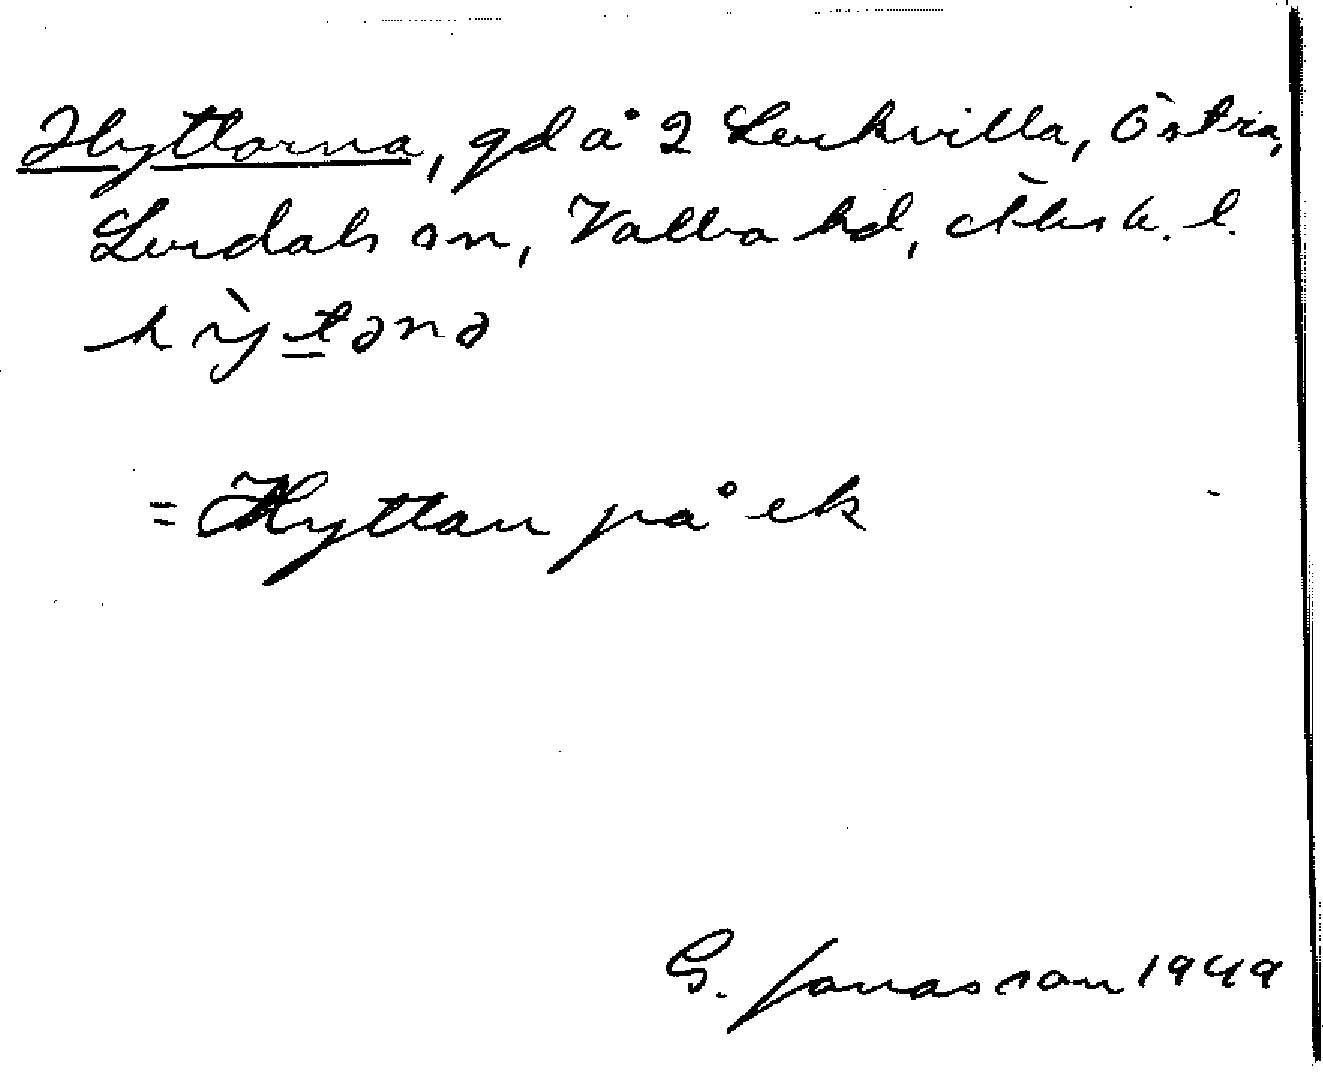 Hyttorna, gd å 2 Lerkvilla, Östra,
Lerdals sn, Valbo hd, Älvsb. l.
hy̆̀tənə
= Hyttan på ek
G. Jonasson 1949